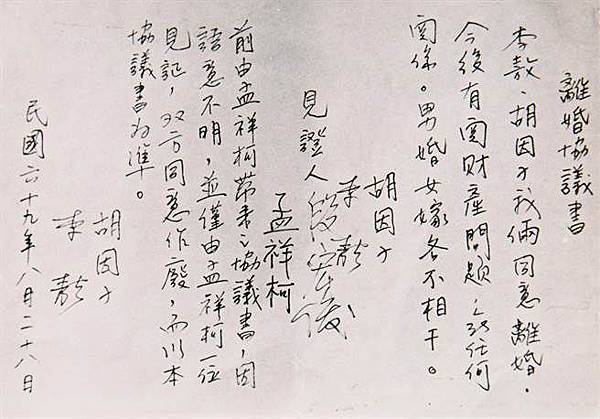 離婚協議書
李敖、胡因子我倆同意離婚,
今後有関財產問題以及任何
関係。男婚女嫁各不相干。
胡因子
李敖
見證人 段宏俊
孟祥柯
前由孟祥柯帶來之協議書,因
語意不明,並僅由孟祥柯一位
見証,双方同意作廢,而以本
協議書为準。
胡因子
李敖
民國六十九年八月二十八日